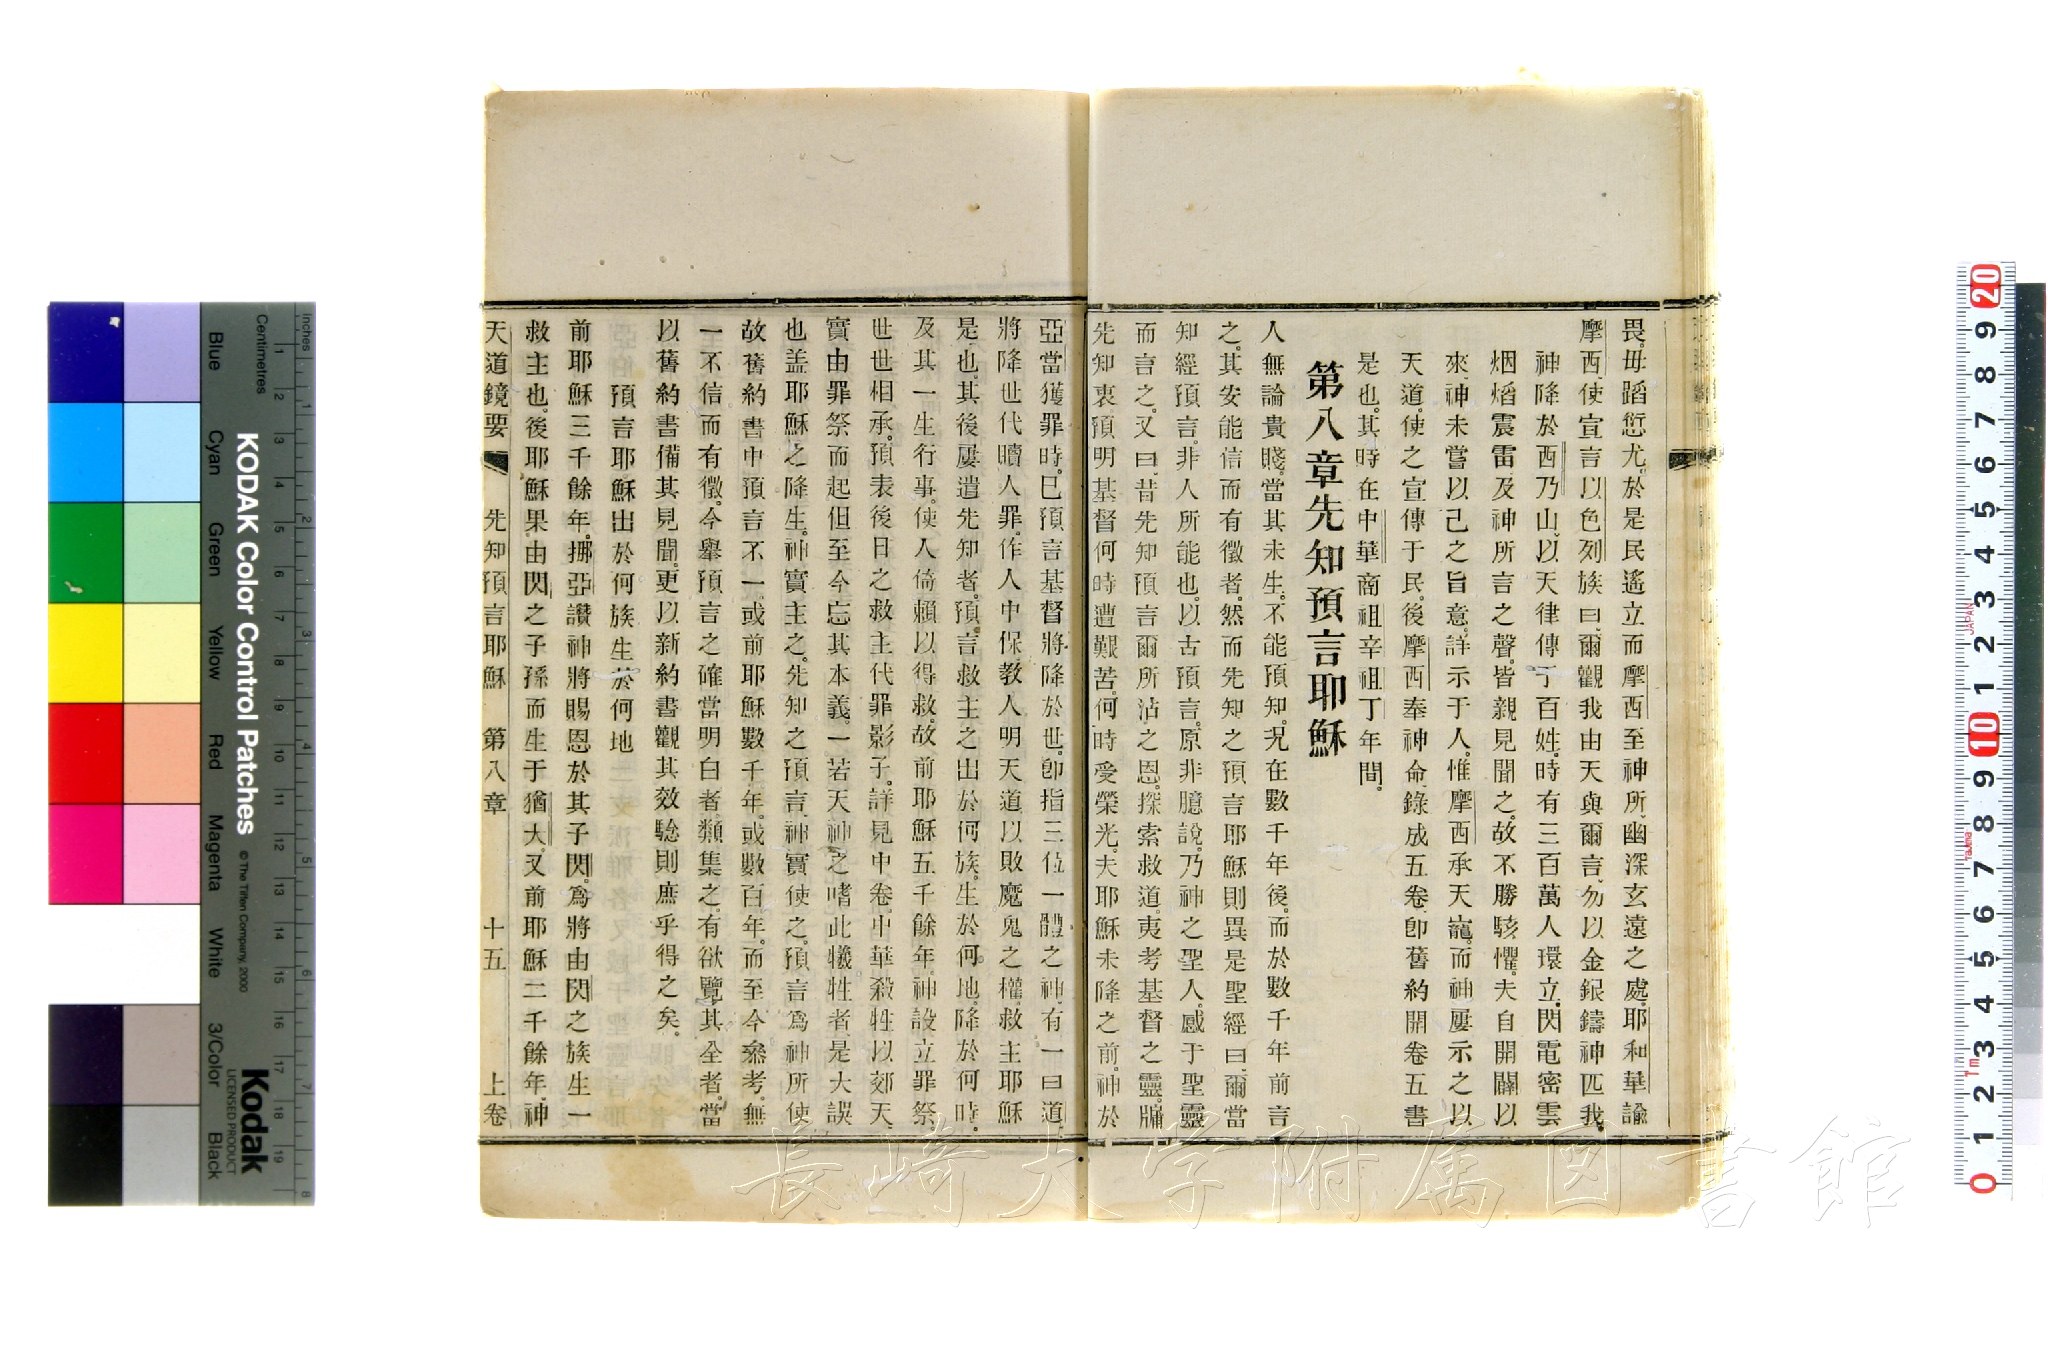 畏毋蹈愆尤於是民遙立而摩西至神所幽深玄遠之處耶和華諭
摩西使宣言以色列族曰爾觀我由天與爾言勿以金銀鑄神匹我
神降於西乃山以天律傳丁百姓時有三百萬人環立閃電密雲
烟熖震雷及神所言之聲皆親見聞之故不勝駭懼夫自開闢以
來神未嘗以己之旨意詳示于人惟摩西承天寵而神屢示之以
天道使之宣傳于民後摩西奉神命錄成五卷卽舊約開卷五書
是也其時在中華商祖辛祖丁年間。
第八章先知預言耶穌
人無論貴賤當其未生不能預知況在數千年後而於數千年前言
之其安能信而有徵者然而先知之預言耶穌則異是聖經曰爾當
知經預言非人所能也以古預言原非臆說乃神之聖人感于聖靈
而言之又曰昔先知預言爾所沾之恩探索救道夷考基督之靈牖
先知衷預明基督何時遭艱苦何時受榮光夫耶穌未降之前神於
亞當獲罪時已預言基督將降於世卽指三位一體之神有一曰道
將降世代贖人罪作人中保教人明天道以敗魔鬼之權救主耶穌
是也其後屢遣先知者預言救主之出於何族生於何地降於何時
及其一生行事使人倚賴以得救故前耶穌五千餘年神設立罪祭
世世相承預表後日之救主代罪影子詳見中卷中華殺牲以郊天
實由罪祭而起但至今忘其本義一若天神之嗜此犧牲者是大誤
也盖耶穌之降生神實主之先知之預言神實使之預言爲神所使
故舊約書中預言不一或前耶穌數千年或數百年而至今叅考無
一不信而有徵今舉預言之確當明白者類集之有欲覽其全者當
以舊約書備其見聞更以新約書觀其效騐則庶乎得之矣。
預言耶穌出於何族生於何地
前耶穌三千餘年挪亞讚神將賜恩於其子閃爲將由閃之族生一
救主也後耶穌果由閃之子孫而生于猶大又前耶穌二千餘年神
天道鏡要 先知預言耶穌 第八章 十五 上卷
KODAK Color Control Patches © The Tiffen Company, 2000
Kodak
LICENSED PRODUCT
Inches 1 2 3 4 5 6 7 8
Centimetres 1 2 3 4 5 6 7 8 9 10 11 12 13 14 15 16 17 18 19
Blue Cyan Green Yellow Red Magenta White 3/Color Black
20 9 8 7 6 5 4 3 2 1 10 9 8 7 6 5 4 3 2 1 0
JAPAN
Tajima
1m
長崎大学附属図書館